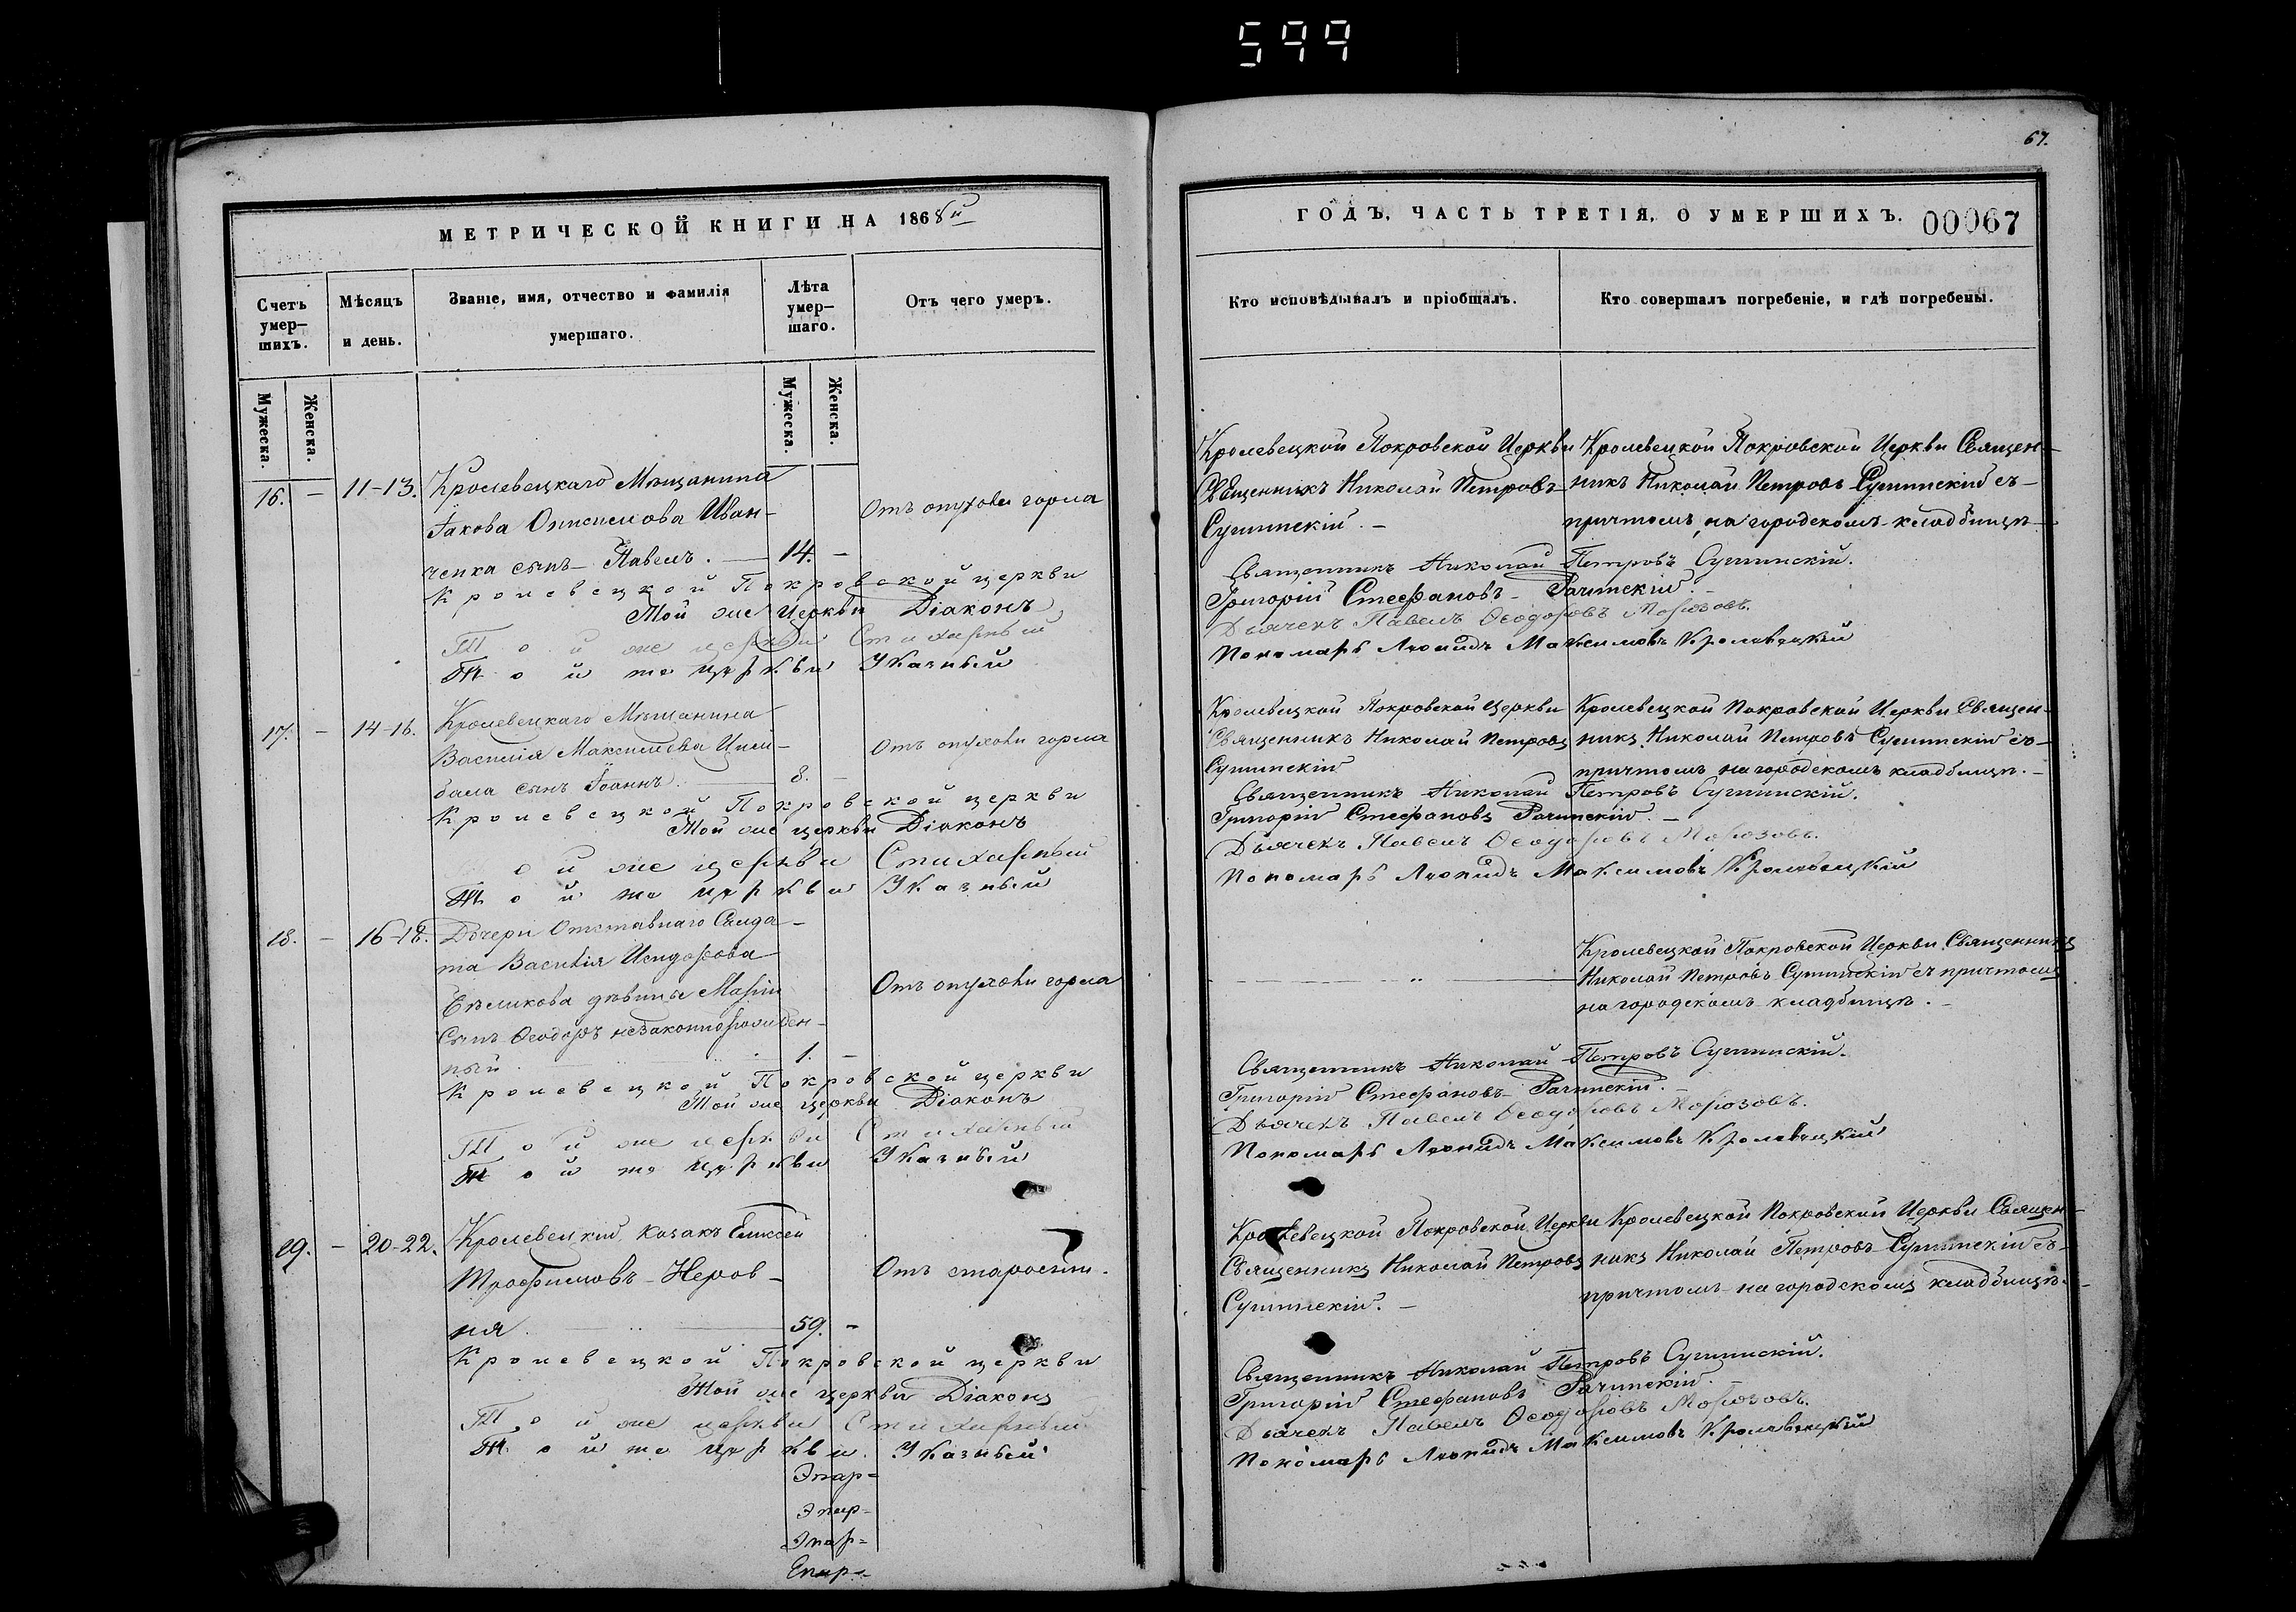 599
МЕТРИЧЕСКОЙ КНИГИ НА 1868й
Счетъ умер-
шихъ.
Мѣсяцъ
и день.
Званіе, имя, отчество и фамилія
умершаго.
Лѣта
умер-
шаго.
Отъ чего умеръ.
Мужеска.
Женска.
Мужеска.
Женска.
16. – 11-13. Кролевецкаго Мѣщанина
Іакова Онисимова Иван-
ченка сынъ Павелъ. 14. –
Отъ опухоли горла
Кролевецкой Покровской церкви
Той же Церкви Діаконъ
Той же церкви Стихарный
Той же церкви Указный
17. – 14-16. Кролевецкаго Мѣщанина
Василія Максимова
сынъ Іоаннъ. 8. –
Отъ опухоли горла
Кролевецкой Покровской церкви
Той же церкви Діаконъ
ой же церкви Стихарный
Той же церкви Указный
18. – 16-18. Дочери Отставнаго Салда-
та Василія Исидорова
Бѣликова дѣвицы Маріи
Сынъ Ѳеодоръ незаконнорожден-
ный. 1. –
Отъ опухоли горла
Кролевецкой Покровской церкви
Той же церкви Діаконъ
Той же церкви Стихарный
Той же церкви Указный
19. – 20-22. Кролевецкій козакъ Елисей
Трофимовъ Неров-
ня. 59. –
Отъ старости.
Кролевецкой Покровской церкви
Той же церкви Діаконъ
Той же церкви Стихарный
Той же церкви. Указный
Эпар-
Эпар-
Эпар-
Епар-
67.
ГОДЪ, ЧАСТЬ ТРЕТІЯ, О УМЕРШИХЪ. 00067
Кто исповѣдывалъ и пріобщалъ.
Кто совершалъ погребеніе, и гдѣ погребены.
Кролевецкой Покровской Церкви
Священникъ Николай Петровъ
Сушинскій. –
Кролевецкой Покровской Церкви Священ-
никъ Николай Петровъ Сушинскій съ
причтомъ, на городскомъ кладбищѣ
Священникъ Николай Петровъ Сушинскій.
Григорій Стефановъ Рачинскій. –
Дьячекъ Павелъ Ѳеодоровъ Морозовъ.
Пономарь Леонидъ Максимовъ Кролевецкій
Кролевецкой Покровской Церкви
Священникъ Николай Петровъ
Сушинскій
Кролевецкой Покровской Церкви Священ-
никъ Николай Петровъ Сушинскій съ
причтомъ на городскомъ кладбищѣ. –
Священникъ Николай Петровъ Сушинскій.
Григорій Стефановъ Рачинскій. –
Дьячекъ Павелъ Ѳеодоровъ Морозовъ.
Пономарь Леонидъ Максимовъ Кролевецкій
Кролевецкой Покровской Церкви Священникъ
Николай Петровъ Сушинскій съ причтомъ
на городскомъ кладбищѣ. –
Священникъ Николай Петровъ Сушинскій.
Григорій Стефановъ Рачинскій. –
Дьячекъ Павелъ Ѳеодоровъ Морозовъ.
Пономарь Леонидъ Максимовъ Кролевецкій
Кролевецкой Покровской Церкви
Священникъ Николай Петровъ
Сушинскій. –
Кролевецкой Покровской Церкви Священ-
никъ Николай Петровъ Сушинскій съ
причтомъ на городскомъ кладбищѣ. –
Священникъ Николай Петровъ Сушинскій.
Григорій Стефановъ Рачинскій.
Дьячекъ Павелъ Ѳеодоровъ Морозовъ.
Пономарь Леонидъ Максимовъ Кролевецкій